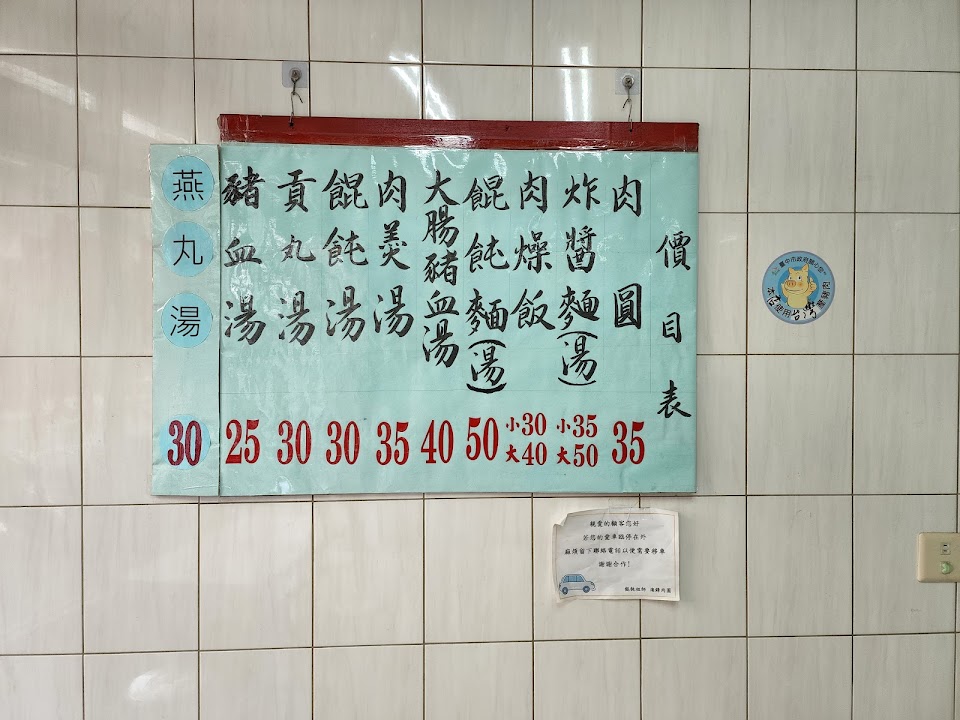 價目表
肉圓 35
炸醬麵(湯) 小35 大50
肉燥飯 小30 大40
餛飩麵(湯) 50
大腸豬血湯 40
肉羹湯 35
餛飩湯 30
貢丸湯 30
豬血湯 25
燕丸湯 30
臺中市政府關心您
本店使用台灣豬
親愛的顧客您好
若您的愛車臨停在外
麻煩留下聯絡電話以便需要移車
謝謝合作!